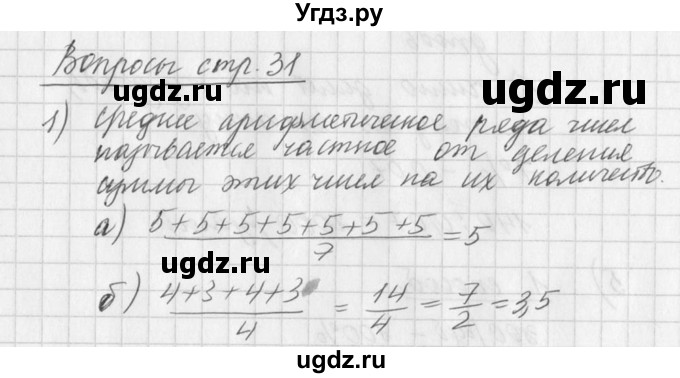 Угдз.ру
Вопросы стр. 31
ugdz.ru ugdz.ru
1) Среднее арифметическое ряда чисел
называется частное от деления
суммы этих чисел на их количеств.
а) 5+5+5+5+5+5+5/7 = 5
ugdz.ru ugdz.ru
б) 4+3+4+3/4 = 14/4 = 7/2 = 3,5
ugdz.ru ugdz.ru